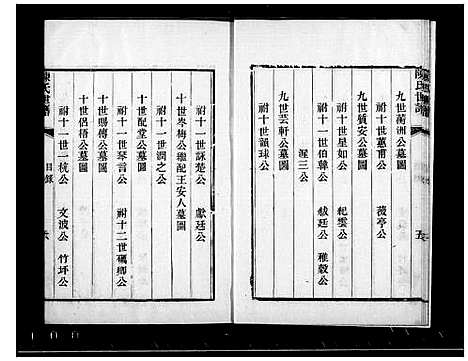 陳氏世譜
五
九世蘭洲公墓圖
祔十世蕙甫公 薇亭公
九世質安公墓圖
祔十世星如公 杞雲公
祔十一世伯縣公 紱廷公 雅毅公
渥三公
九世芸軒公墓圖
祔十世韻球公
祔十一世詠楚公 獻廷公
十世岑梅公繼配王安人墓圖
祔十一世潤之公
十世配堂公墓圖
祔十一世琴言公 祔十二世碼卿公
十世賜傳公墓圖
十世侶梧公墓圖
祔十一世一枕公 文波公 竹坪公
陳氏世譜
目錄
六